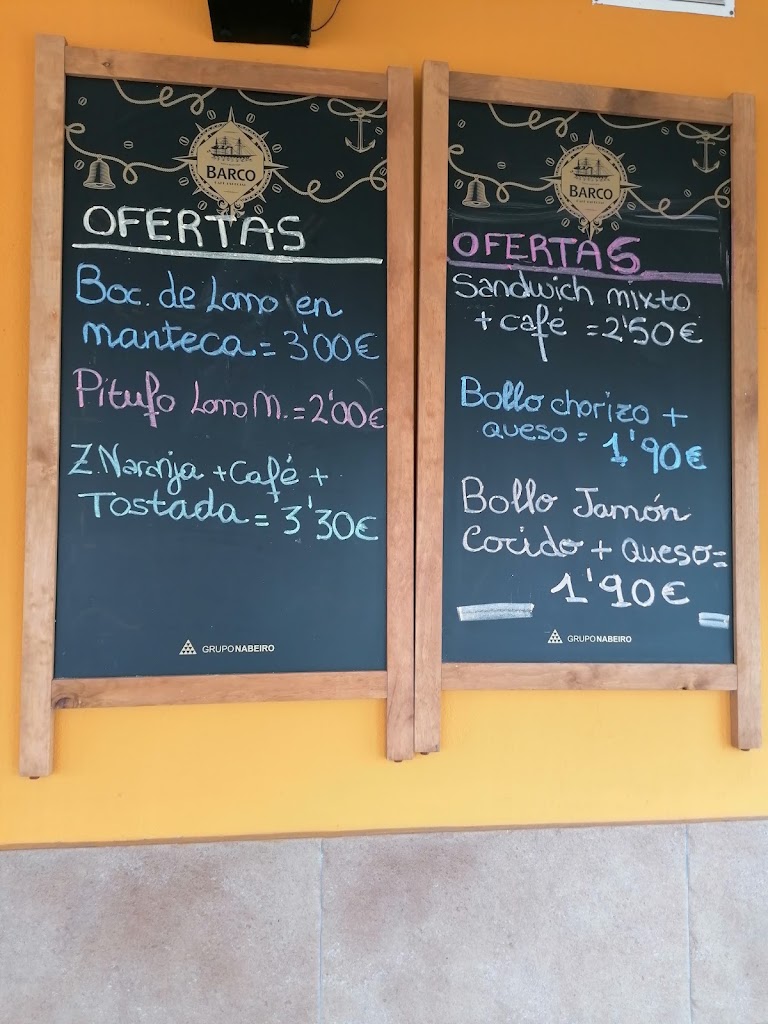 BARCO
OFERTAS
Boc. de Lomo en
manteca = 3'00€
Pitufo Lomo M. = 2'00€
Z. Naranja + Café +
Tostada = 3'30€
GRUPONABEIRO
BARCO
OFERTAS
Sandwich mixto
+ café = 2'50€
Bollo chorizo +
queso = 1'90€
Bollo Jamón
Cocido + queso =
1'90€
GRUPONABEIRO